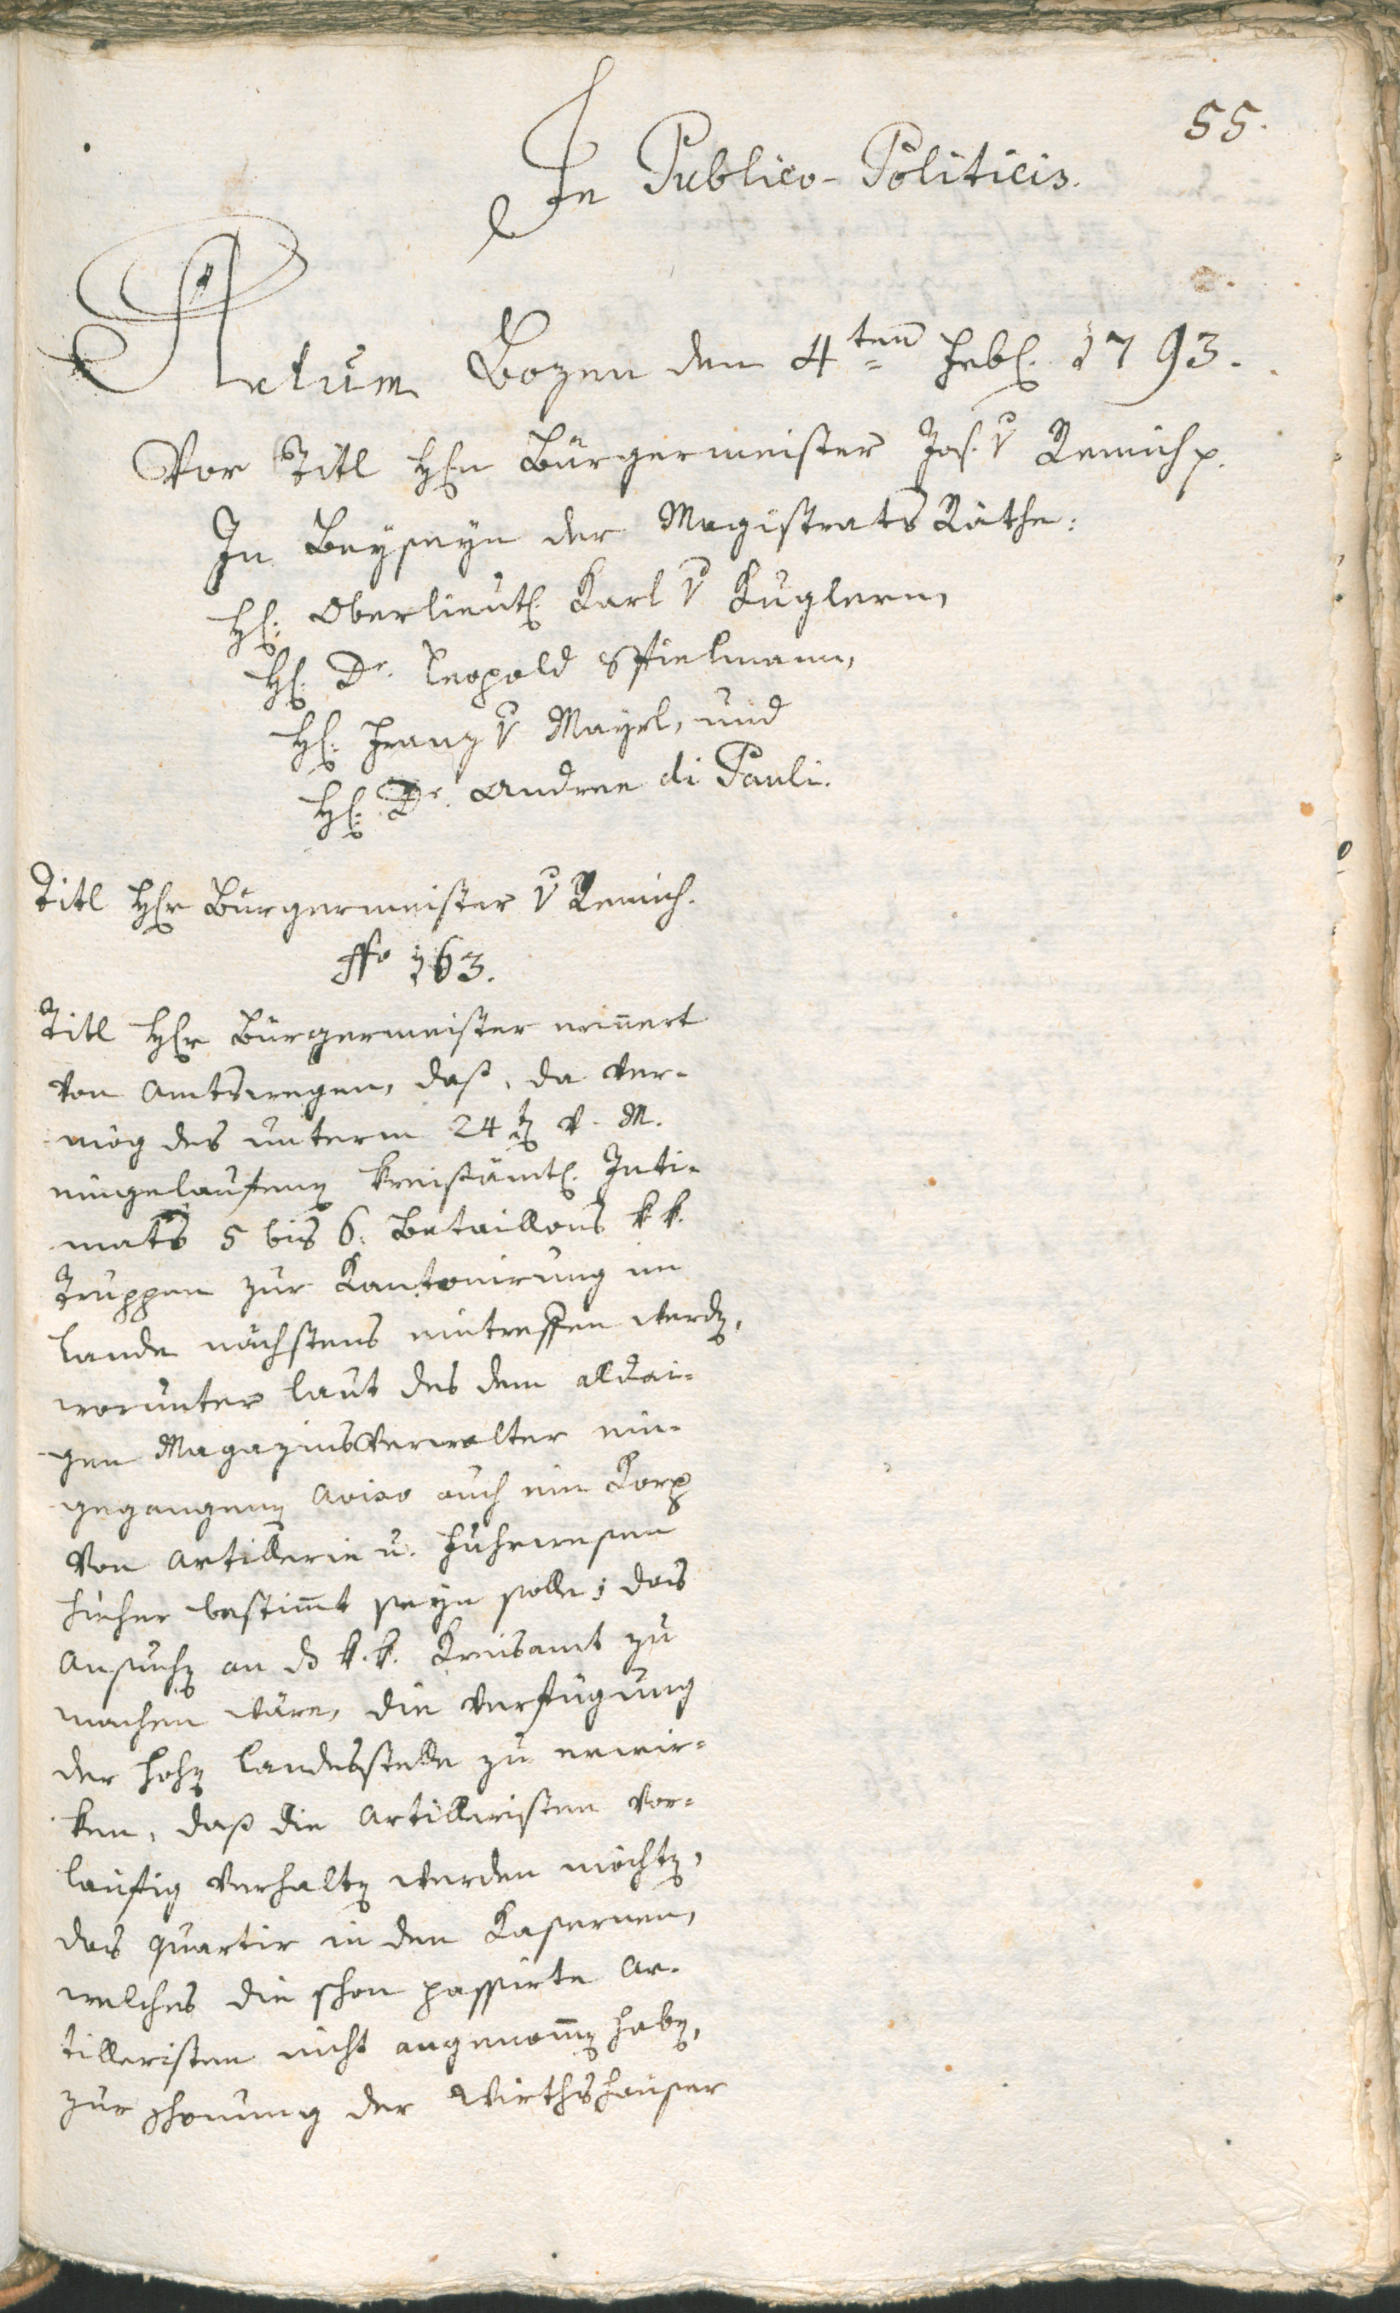 55.
In Publico-Politicis.
Actum Bozen den 4ten Febr. 1793.
Vor Titl Hrn Bürgermeister Jos. v Remich p.
In Beyseyn der Magistrats Räthe:
Hr. Oberlieut. Karl v Kuglern,
Hr. Dr. Leopold Spielmann,
Hr. Franz v Mayrl, und
Hr. Dr. Andree di Pauli.
Titl Hr Bürgermeister v Remich.
163.
Titl Hr Bürgermeister erinnert
von Amtswegen, daß, da ver-
mög des unterm 24ten v. M.
eingelaufenen kreisämtl. Inti-
mats 5 bis 6. Bataillons k k.
Truppen zur Kantonirung im
Lande nächstens eintreffen werden,
worunter laut des dem alldai-
gen Magazinsverwalter ein-
gegangenen Aviso auch ein Korps
von Artillerie u. Fuhrwesen
hieher bestimmt seyn solle; das
Ansuchen an ds k. k. Kreisamt zu
machen wäre, die Verfügung
der hohen Landesstelle zu erwir-
ken, daß die Artilleristen vor-
läufig verhalten werden möchten,
das Quartir in den Kasernen,
welches die schon passirte Ar-
tilleristen nicht angenommen haben,
zur Schonung der Wirthshäuser